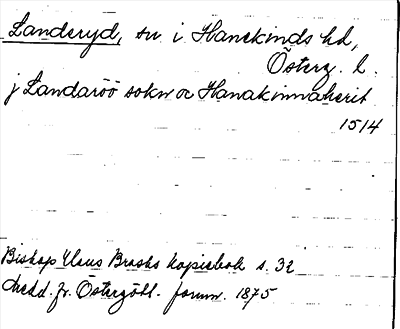 Landeryd, sn i Hanekinds hd,
Österg. l.
j Landaröö sokn oc Hanakinnaherit
1514
Biskop Hans Brasks kopiebok s. 32
Medd. fr. Östergötl. fornm. 1875